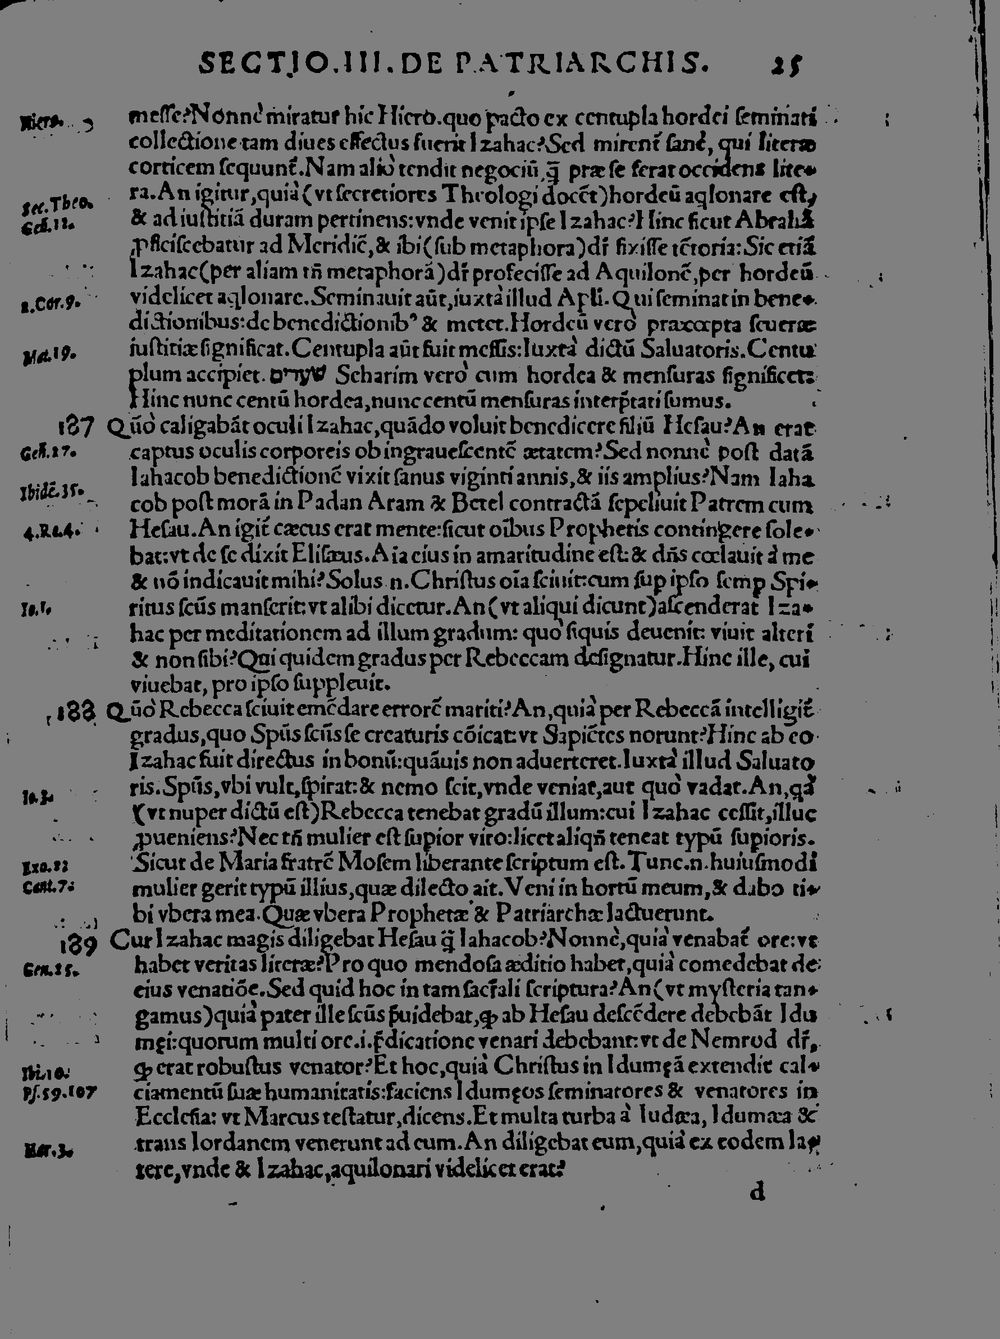 SECTIO.III.DE PATRIARCHIS. 25
Hiero.
messe?Nonnè miratur hic Hiero.quo pacto ex centupla hordei seminati
collectione tam diues effectus fuerit Izahac?Sed mirent̃ sanè, qui literæ
corticem sequunt̃.Nam aliò tendit negociũ, q̃ præ se ferat occidens lite-
Sec.Theo.
ra.An igitur,quià(vt secretiores Theologi docẽt)hordeũ aqlonare est,
Geñ.12.
& ad iustitiã duram pertinens:vnde venit ipse Izahac?Hinc sicut Abrahã
ꝓficiscebatur ad Meridiẽ,& ibi(sub metaphora)dr̃ fixisse tẽtoria:Sic etiã
Izahac(per aliam tñ metaphorã)dr̃ profecisse ad Aquilonẽ,per hordeũ
2.Cor.9.
videlicet aqlonare.Seminauit aũt,iuxtà illud Apli.Qui seminat in bene-
dictionibus:de benedictionib⁹ & metet.Hordeũ verò præcepta seueræ
Mat.19.
iustitiæ significat.Centupla aũt fuit messis:Iuxtà dictũ Saluatoris.Centu
plum accipiet.שערים Scharim verò cum hordea & mensuras significet:
Hinc nunc centũ hordea,nunc centũ mensuras interp̃tati sumus.
187 Qũo caligabãt oculi Izahac,quãdo voluit benedicere filiũ Hesau?An erat
Geñ.27.
captus oculis corporeis ob ingrauescentẽ ætatem?Sed nonnè post datã
Iahacob benedictionẽ vixit sanus viginti annis,& iis amplius?Nam Iaha
Ibidẽ.35.
cob post morã in Padan Aram & Betel contractã sepeliuit Patrem cum
4.Re.4.
Hesau.An igit̃ cæcus erat mente:sicut oĩbus Prophetis contingere sole-
bat:vt de se dixit Elisæus.Aĩa eius in amaritudine est:& dñs cœlauit à me
& nõ indicauit mihi?Solus.n.Christus oĩa sciuit:cum sup ipso semp Spi-
Io.1.
ritus scũs manserit:vt alibi dicetur.An(vt aliqui dicunt)ascenderat Iza-
hac per meditationem ad illum gradum: quò siquis deuenit: viuit alteri
& non sibi?Qui quidem gradus per Rebeccam designatur.Hinc ille, cui
viuebat, pro ipso suppleuit.
188 Qũo Rebecca sciuit emẽdare errorẽ mariti?An,quià per Rebeccã intelligit̃
gradus,quo Spũs scũs se creaturis cõicat:vt Sapiẽtes norunt?Hinc ab eo
Izahac fuit directus in bonũ:quãuis non aduerteret.Iuxtà illud Saluato
Io.3.
ris.Spũs,vbi vult,spirat:& nemo scit,vnde veniat,aut quò vadat.An,qà
(vt nuper dictũ est)Rebecca tenebat gradũ illum:cui Izahac cessit,illuc
ꝓueniens?Nec tñ mulier est supior viro:licet aliqñ teneat typũ supioris.
Exo.2?
Sicut de Maria fratrẽ Mosem liberante scriptum est.Tunc.n.huiusmodi
Cant.7.
mulier gerit typũ illius,quæ dilecto ait.Veni in hortũ meum,& dabo ti-
bi vbera mea.Quæ vbera Prophetæ & Patriarchæ lactuerunt.
189 Cur Izahac magis diligebat Hesau q̃ Iahacob?Nonnè,quià venabat̃ ore:vt
Gen.25.
habet veritas literæ?Pro quo mendosa æditio habet,quià comedebat de
eius venatiõe.Sed quid hoc in tam sacr̃ali scriptura?An(vt mysteria tan-
gamus)quià pater ille scũs p̃uidebat,ꝙ ab Hesau descẽdere debebãt Idu
męi:quorum multi ore.i.p̃dicatione venari debebant:vt de Nemrod dr̃,
Ibi.10.
ꝙ erat robustus venator?Et hoc,quià Christus in Idumęã extendit cal-
Ps.59.107
ciamentũ suæ humanitatis:faciens Idumęos seminatores & venatores in
Ecclesia: vt Marcus testatur,dicens.Et multa turba à Iudæa, Idumæa &
Mar.3.
trans Iordanem venerunt ad eum.An diligebat eum,quià ex eodem la-
tere,vnde & Izahac,aquilonari videlicet erat?
d